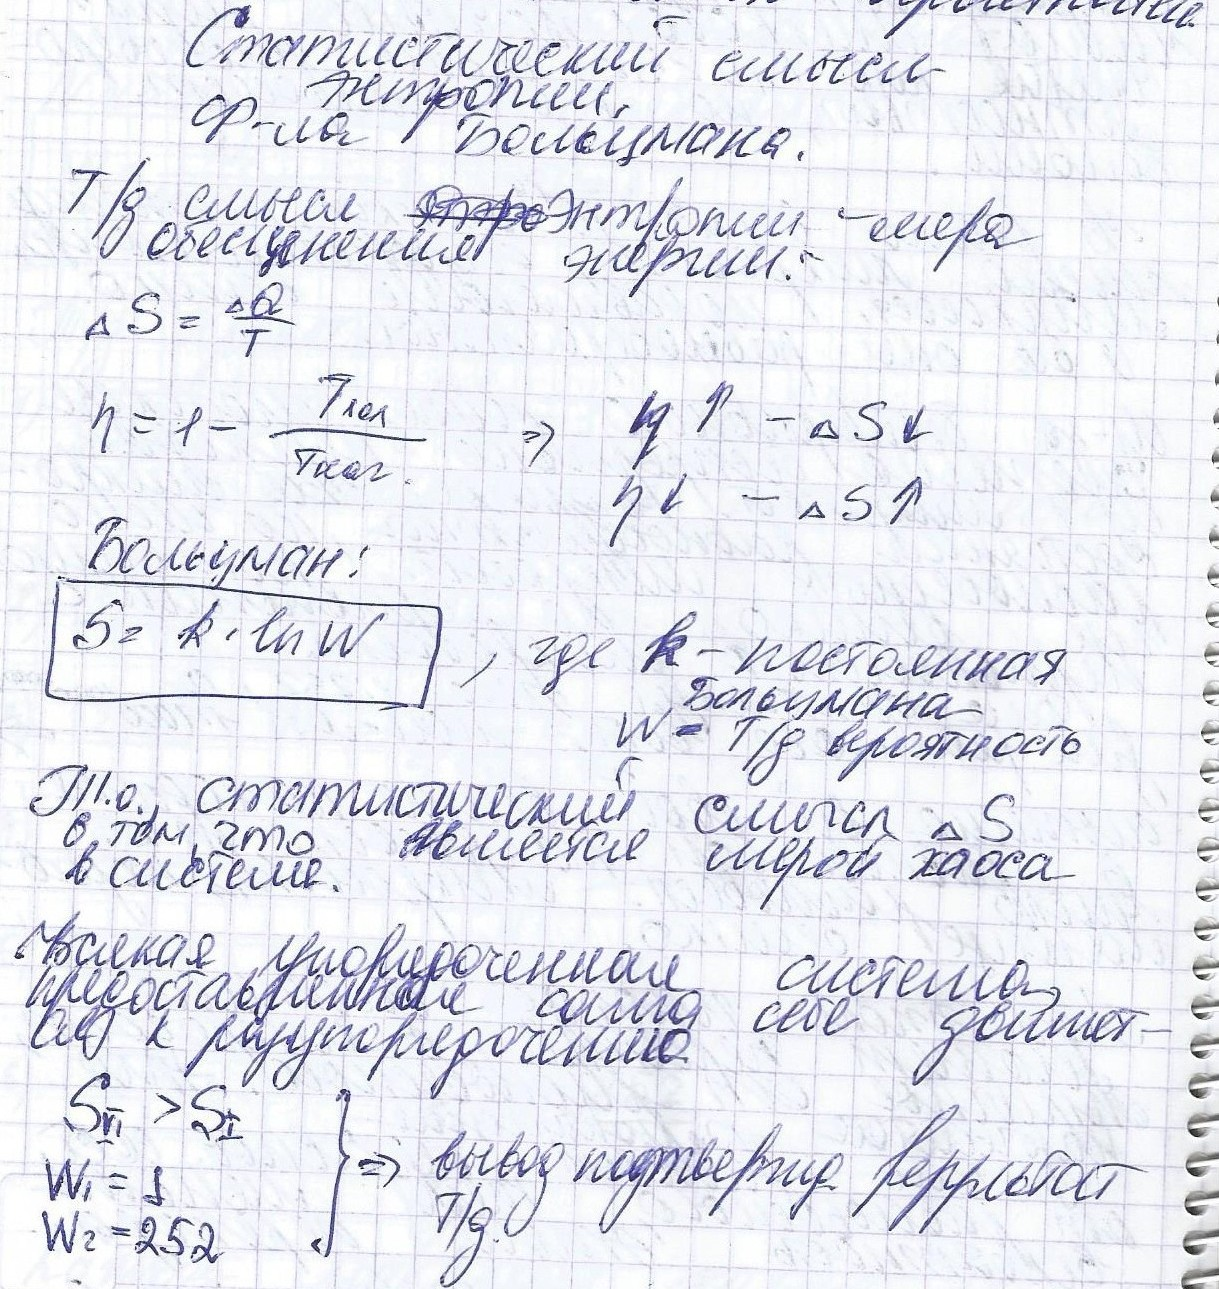 Статистический смысл
энтропии.
Ф-ла Больцмана.
Т/д смысл энтропии - мера
обесценения энергии:
ΔS = ΔQ/T
η = 1 - Tхол/Tнаг. => η↑ - ΔS↓
η↓ - ΔS↑
Больцман:
S = k · ln W , где k - постоянная
Больцмана
W - Т/д вероятность
Т.о., статистический смысл ΔS
в том, что является мерой хаоса
в системе.
Всякая упорядоченная система,
предоставленная сама себе движет-
ся к разупорядочению
S_II > S_I
W₁ = 1
W₂ = 252
} => вывод подтвержд. результат
Т/д.